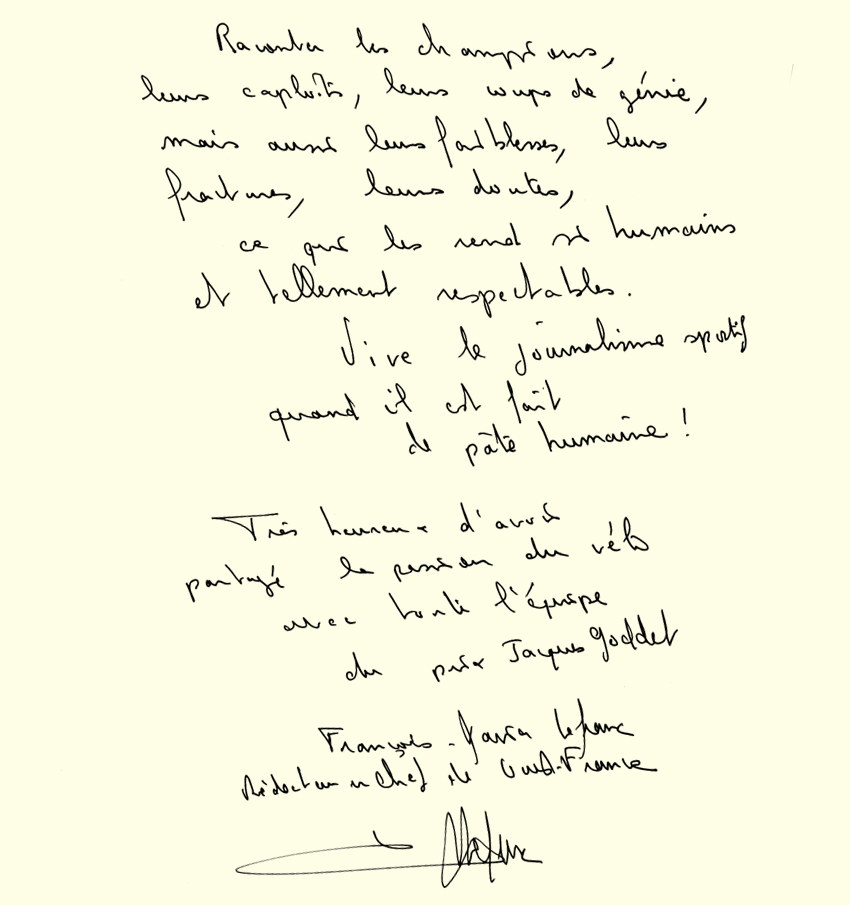 Raconter les champions,
leurs exploits, leurs coups de génie,
mais aussi leurs faiblesses, leurs
fractures, leurs doutes,
ce qui les rend si humains
et tellement respectables.
Vive le journalisme sportif
quand il est fait
de pâte humaine !
Très heureux d'avoir
partagé la passion du vélo
avec toute l'équipe
du prix Jacques Goddet
François-Xavier Lefranc
Rédacteur en chef de Ouest-France